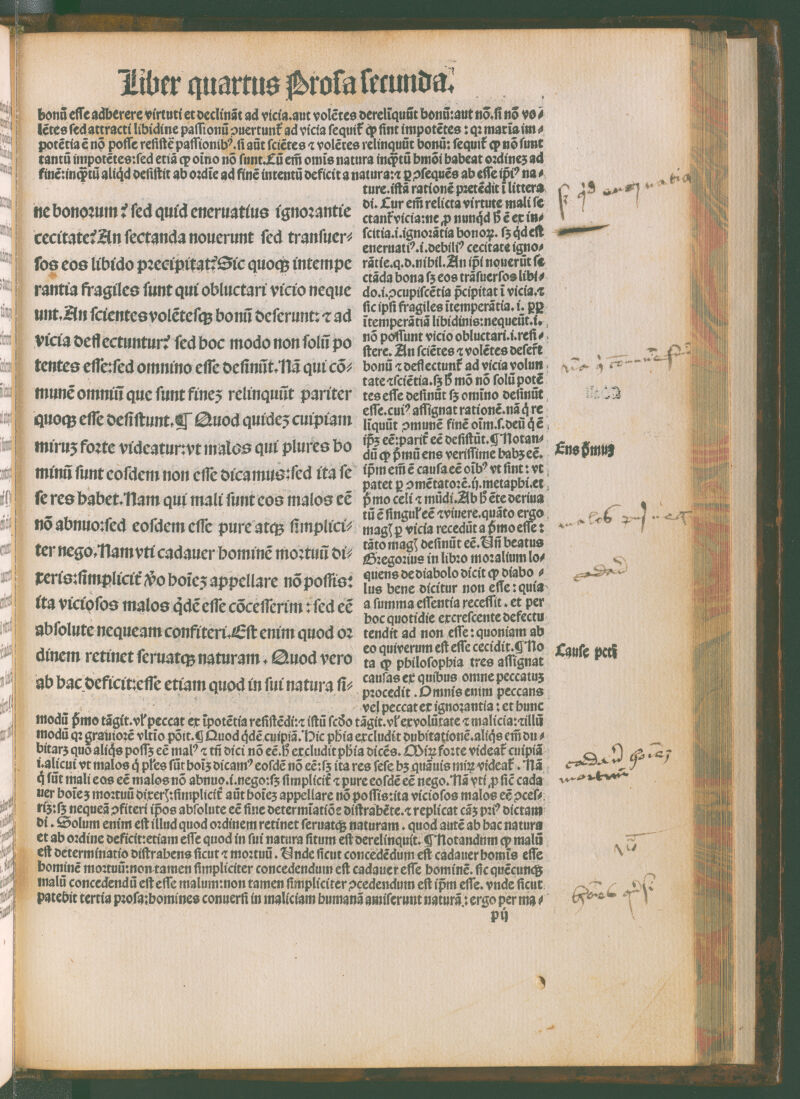 Liber quartus Prosa secunda.
bonū esse adherere virtuti et declināt ad vicia. aut volētes derelīquūt bonū: aut nō. si nō vo⸗
lētes sed attracti libidine passionū ꝯuertunt᷑ ad vicia sequit᷑ ꝙ sint impotētes: qꝛ maria im⸗
potētia ē nō posse resistē passionibꝰ. si aūt sciētes ⁊ volētes relinquūt bonū: sequit᷑ ꝙ nō sunt
tantū impotētes: sed etiā ꝙ oīno nō sunt. Cū em̄ omīs natura inqᷓtū bmōi habeat ordinez ad
finē: inqᷓtū aliqd̄ desistit ab ordīe ad finē intentū deficit a natura: ⁊ ꝑ ꝯsequēs ab esse ip̄iꝰ na⸗
ne bonorum? sed quid eneruatius ignorantie
cecitate? An sectanda nouerunt sed transuer⸗
sos eos libido precipitat? Sic quoqꝫ intempe
rantia fragiles sunt qui obluctari vicio neque
unt. An scientes volētesqꝫ bonū deserunt: ⁊ ad
vicia deflectuntur? sed hoc modo non solū po
tentes esse: sed omnino esse desinūt. Nā qui cō⸗
munē omniū que sunt finez relinquūt pariter
quoqꝫ esse desistunt. ¶ Quod quidez cuipiam
miruz forte videatur: vt malos qui plures ho
minū sunt eosdem non esse dicamus: sed ita se
se res habet. Nam qui mali sunt eos malos eē
nō abnuo: sed eosdem esse pure atqꝫ simplici⸗
ter nego. Nam vti cadauer hominē mortuū di⸗
xeris: simplicit᷑ ꝟo hoīez appellare nō possis:
ita viciosos malos qd̄ē esse cōcesserim: sed eē
absolute nequeam confiteri. Est enim quod or
dinem retinet seruatqꝫ naturam. Quod vero
ab hac deficit: esse etiam quod in sui natura si⸗
ture. istā rationē pretēdit ī littera
di. Cur em̄ relicta virtute mali se
ctant᷑ vicia: ne ꝓ nunqd̄ h̄ ē ex in⸗
scitia .i. ignorātia bonoꝝ. sꝫ qd̄ est
eneruatiꝰ .i. debiliꝰ cecitate igno⸗
rātie. q. d. nihil. An ip̄i nouerūt se
ctāda bona sꝫ eos trāsuersos libi⸗
do .i. ꝯcupiscētia p̄cipitat ī vicia. ⁊
sic ipsi fragiles ītemperātia. i. ꝓp̱
ītemperātiā libidinis: nequeūt .i.
nō possunt vicio obluctari .i. resi⸗
stere. An sciētes ⁊ volētes deser̄t
bonū ⁊ deflectunt᷑ ad vicia volun
tate ⁊ sciētia. sꝫ h̄ mō nō solū potē
tes esse desinūt sꝫ oīno desinūt
esse. cuiꝰ assignat rationē. nā q̄ re
līquūt ꝯmunē finē oīm .s. deū q̄ ē
ip̄ꝫ eē: parit᷑ eē desistūt. ¶ Notan⸗
dū ꝙ p̄mū ens verissime habꝫ eē.
ip̄m em̄ ē causa eē oībꝰ vt sint: vt
patet ꝑ ꝯmētatorē .ij. metaphi. et
p̄mo celi ⁊ mūdi. Ab h̄ ēte deriua
tū ē singul᷑ eē ⁊ viuere. quāto ergo
magꝭ ꝑ vicia recedūt a p̄mo esse:
tāto magꝭ desinūt eē. Uñ beatus
Gregorius in libro moralium lo⸗
quens de diabolo dicit ꝙ diabo⸗
lus bene dicitur non esse: quia
a summa essentia recessit. et per
hoc quotidie excrescente defectu
tendit ad non esse: quoniam ab
eo qui verum est esse cecidit. ¶ No
ta ꝙ philosophia tres assignat
causas ex quibus omne peccatuz
procedit. Omnis enim peccans
vel peccat ex ignorantia: et hunc
modū p̄mo tāgit. vl᷑ peccat ex īpotētia resistēdi: ⁊ istū scdo tāgit. vl᷑ ex volūtate ⁊ malicia: ⁊ illū
modū qꝛ grauiorē vltīo pōit. ¶ Quod qd̄ē cuipiā. Hic phīa excludit dubitationē. aliqs em̄ du⸗
bitarꝫ quō aliqs possꝫ eē malꝰ ⁊ tn̄ dici nō eē. h̄ excludit phīa dicēs. Miꝝ forte videat᷑ cuipiā
.i. alicui vt malos q̄ pl̄es sūt hoīꝫ dicamꝰ eosdē nō eē: sꝫ ita res sese hꝫ quāuis miꝝ videat᷑. Nā
q̄ sūt mali eos eē malos nō abnuo .i. nego: sꝫ simplicit᷑ ⁊ pure eosdē eē nego. Nā vti ꝓ sic cada
uer hoīez mortuū dixerꝭ: simplicit᷑ aūt hoīez appellare nō possis: ita viciosos malos eē ꝯcef⸗
rīꝫ: sꝫ nequeā ꝯfiteri ip̄os absolute eē sine determīatiōe distrahēte. ⁊ replicat cāꝫ priꝰ dictam
di. Solum enim est illud quod ordinem retinet seruatqꝫ naturam. quod autē ab hac natura
et ab ordine deficit: etiam esse quod in sui natura situm est derelinquit. ¶ Notandum ꝙ malū
est determinatio distrahens sicut ⁊ mortuū. Unde sicut concedēdum est cadauer homīs esse
hominē mortuū: non tamen simpliciter concedendum est cadauer esse hominē. sic quēcunqꝫ
malū concedendū est esse malum: non tamen simpliciter ꝯcedendum est ip̄m esse. vnde sicut
patebit tertia prosa: homines conuersi in maliciam humanā amiserunt naturā: ergo per ma⸗
pij
Ens p̄mūꝫ
malos
cadauer
Cause pcti
cadauer
mortuum